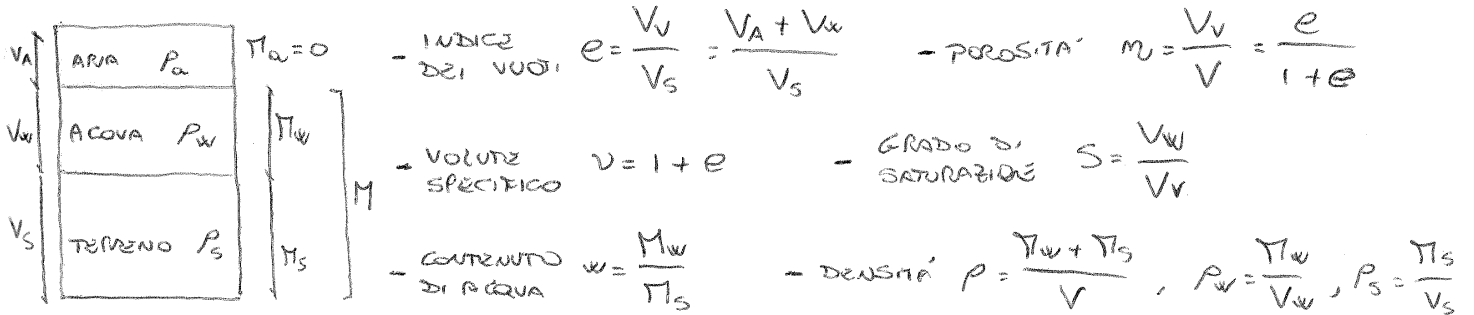 V_A ARIA ρ_a M_a = 0
V_w ACQUA ρ_w M_w
V_S TERRENO ρ_s M_s
M
- INDICE DEI VUOTI e = V_V / V_S = (V_A + V_w) / V_S
- POROSITÀ n = V_V / V = e / (1 + e)
- VOLUME SPECIFICO v = 1 + e
- GRADO DI SATURAZIONE S = V_W / V_V
- CONTENUTO DI ACQUA w = M_w / M_s
- DENSITÀ ρ = (M_w + M_s) / V , ρ_w = M_w / V_w , ρ_s = M_s / V_s